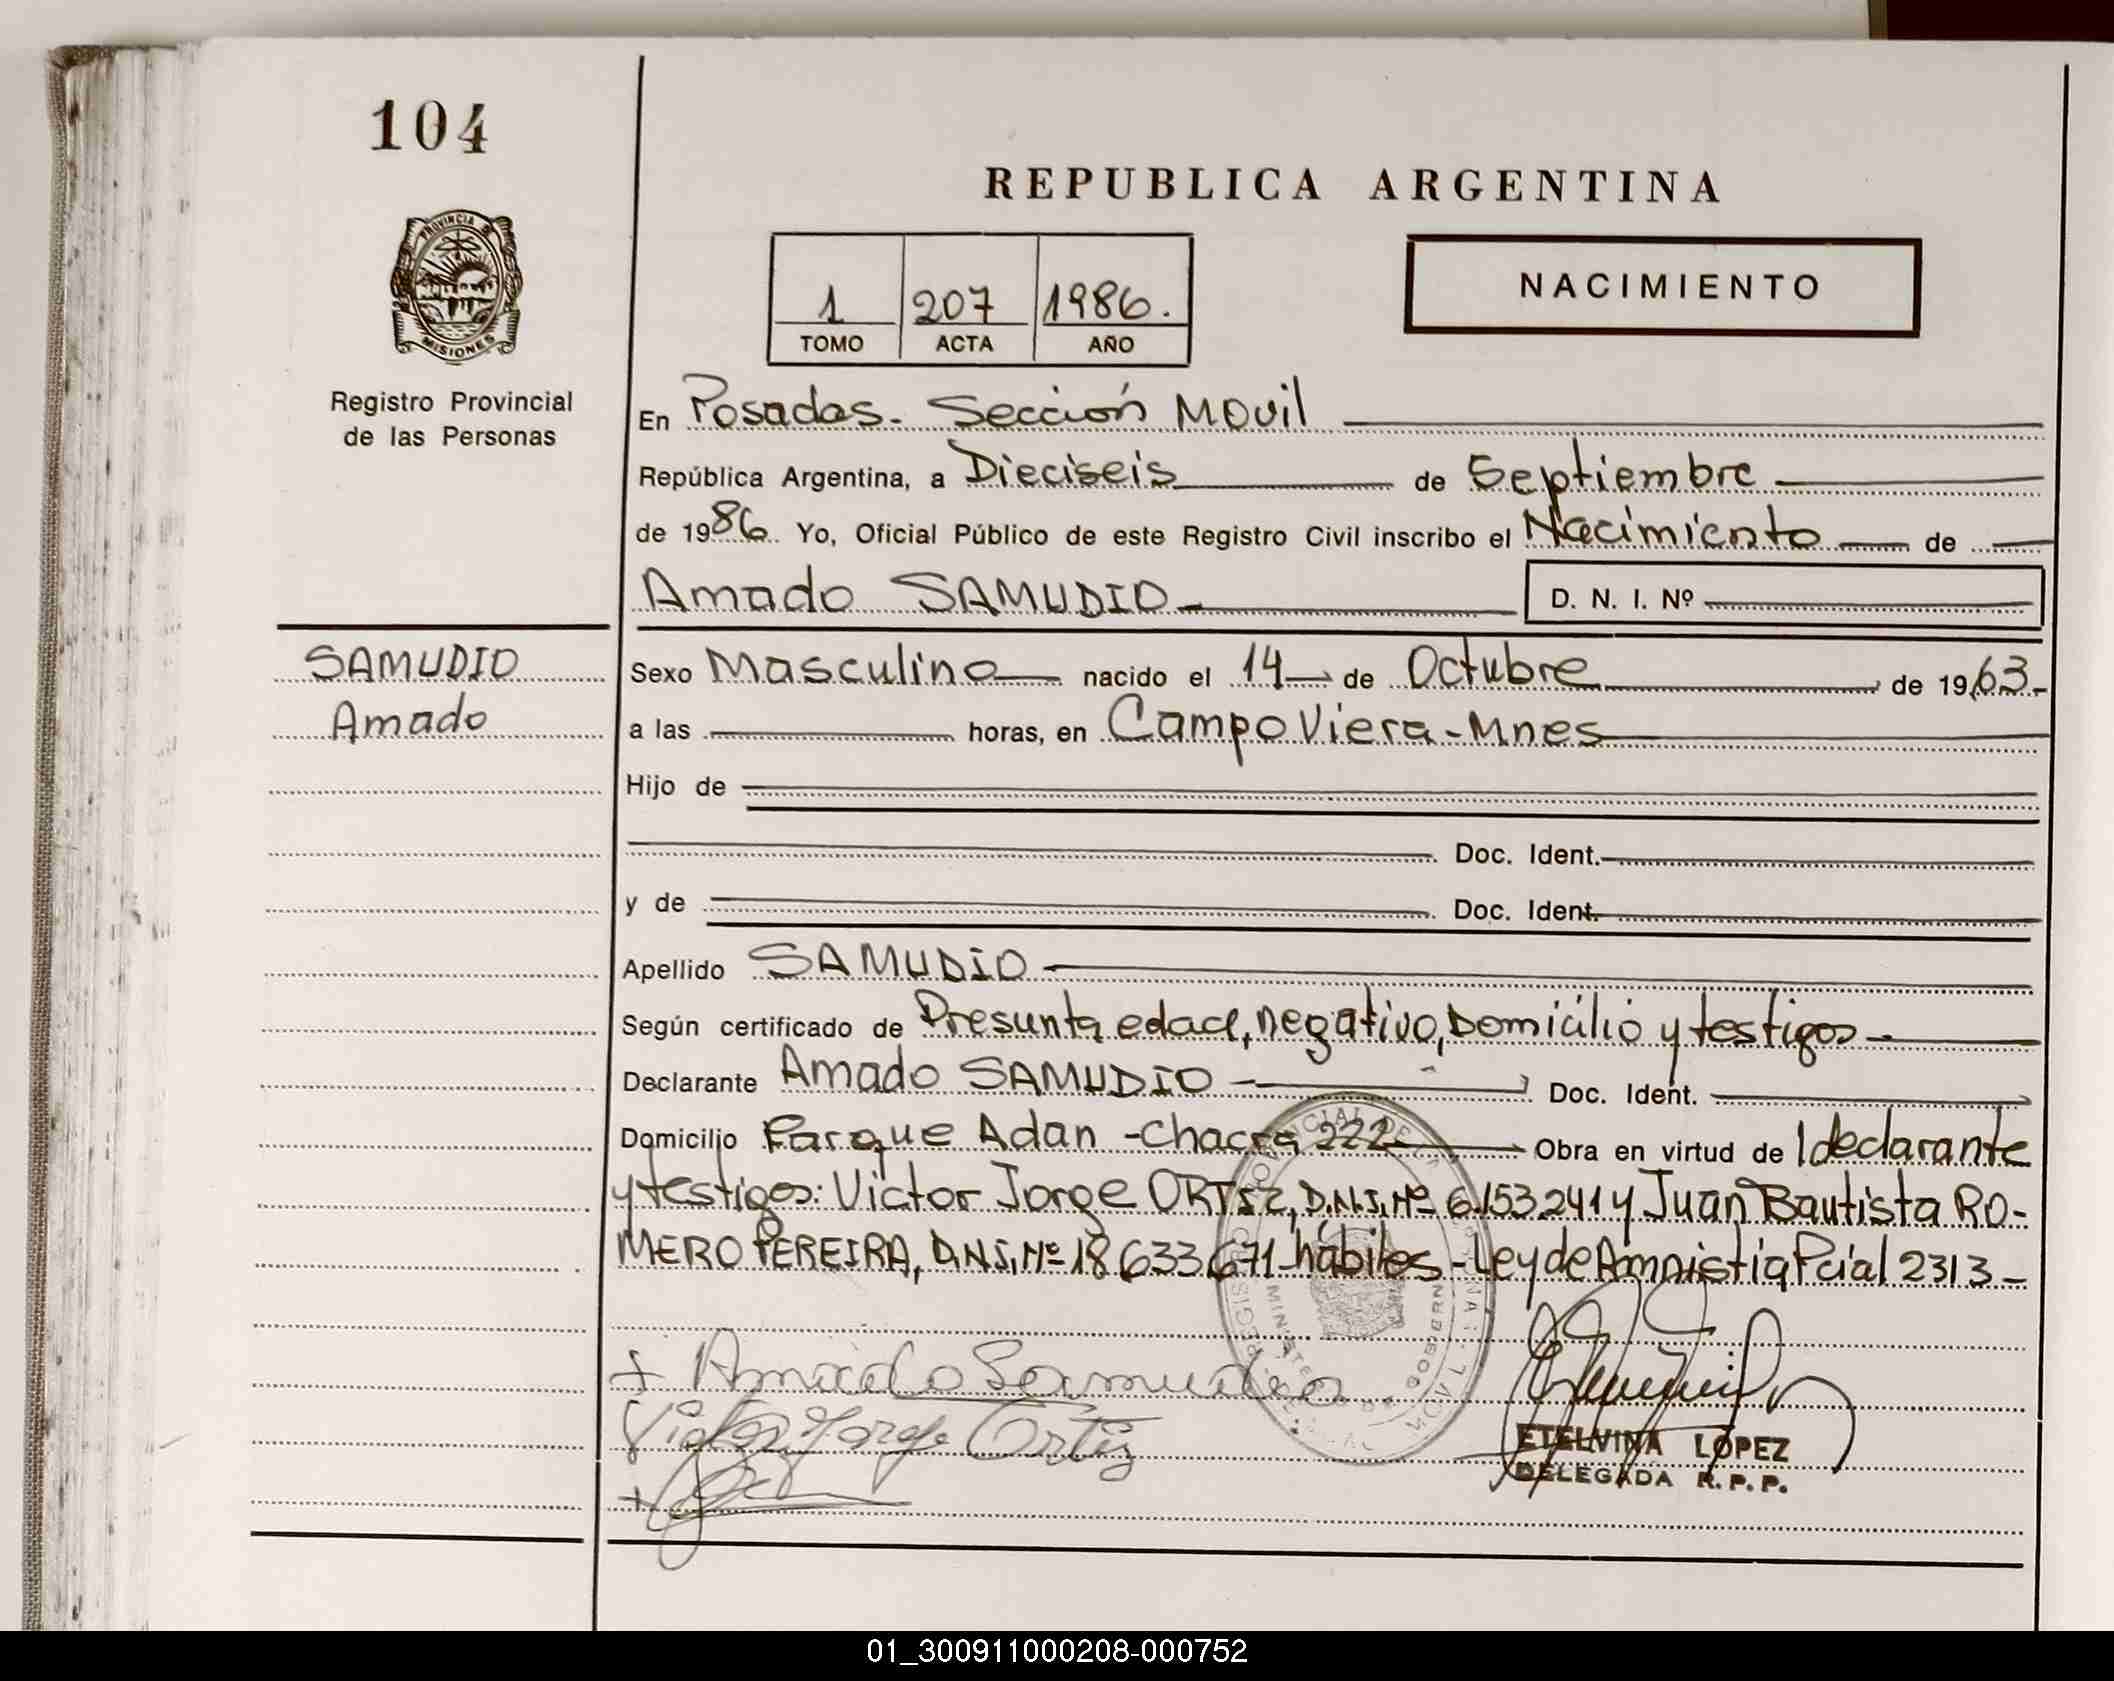 104
REPUBLICA ARGENTINA
PROVINCIA DE
MISIONES
Registro Provincial
de las Personas
1 207 1986.
TOMO ACTA AÑO
NACIMIENTO
En Posadas. Sección Movil
República Argentina, a Dieciseis de Septiembre
de 1986 Yo, Oficial Público de este Registro Civil inscribo el Nacimiento de
Amado SAMUDIO
D. N. I. Nº
SAMUDIO
Amado
Sexo Masculino nacido el 14 de Octubre de 1963.
a las horas, en Campo Viera - Mnes
Hijo de
Doc. Ident.
y de Doc. Ident.
Apellido SAMUDIO
Según certificado de Presunta edad, negativo, Domicilio y testigos
Declarante Amado SAMUDIO Doc. Ident.
Domicilio Parque Adan - Chacra 222 Obra en virtud de l declarante
y testigos: Victor Jorge ORTIZ, D.N.I. Nº 6.153.241 y Juan Bautista RO-
MERO PEREIRA, D.N.I. Nº 18.633.671 - hábiles - Ley de Amnistia Pcial 2313 -
+ Amado Samudio
Victor Jorge Ortiz
ETELVINA LOPEZ
DELEGADA R.P.P.
01_300911000208-000752